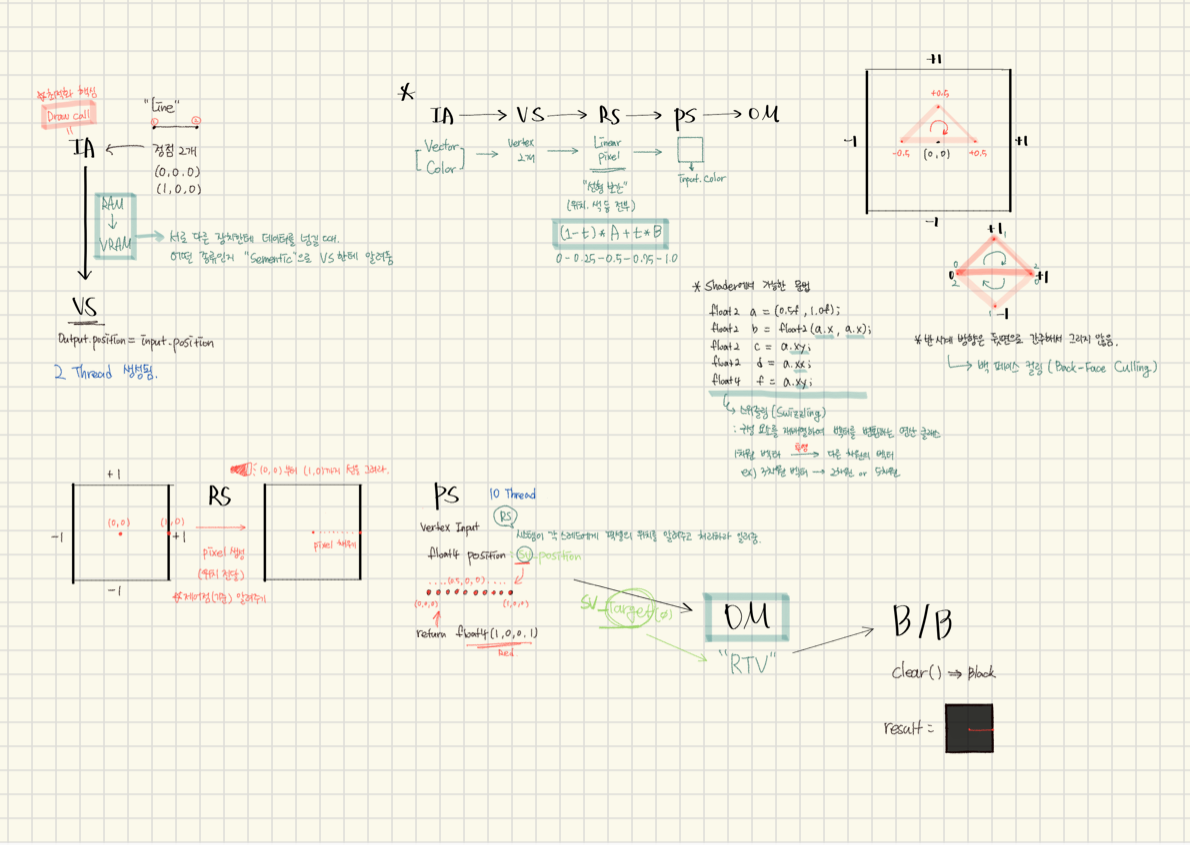 ※최적화 핵심
Draw call
"Line"
IA
정점 2개
(0,0,0)
(1,0,0)
RAM
VRAM
서로 다른 장치한테 데이터를 넘길 때.
어떤 종류인지 "Sementic"으로 VS한테 알려줌
VS
Output.position = input.position
2 Thread 생성됨.
*
IA → VS → RS → PS → OM
Vector
Color
Vertex
2개
Linear
Pixel
"선형 보간"
(위치, 색 등 전부)
input.color
(1-t)*A+t*B
0-0.25-0.5-0.75-1.0
+1
+0.5
-1
+1
-0.5
(0,0)
+0.5
-1
+1
1
0
2
0
2
+1
0
1
-1
※반시계 방향은 뒷면으로 간주해서 그리지 않음.
백 페이스 컬링 (Back-Face Culling)
※ Shader에서 가능한 문법
float2 a = (0.5f, 1.0f);
float2 b = float2(a.x, a.x);
float2 c = a.xy;
float2 d = a.xx;
float4 f = a.xy;
스위즐링 (Swizzling)
: 구성 요소를 재배열하여 벡터를 변환하는 연산
다른 차원의 벡터
ex) 3차원 벡터 → 2차원 or 5차원
+1
RS
: (0,0)부터 (1,0)까지 선을 그려라.
(0,0)
-1
+1
pixel 생성
(위치 전달)
pixel 채우기
-1
PS
10 Thread
RS
Vertex Input
시스템이 각 스레드에게 픽셀의 위치를 알려주고 처리하라 알려줌.
float4 position SV_position
....(0.5,0,0)....
(0,0,0)
(1,0,0)
return float4(1,0,0,1)
Red
SV_Target(0)
OM
"RTV"
B/B
clear() ⇒ Black
result =